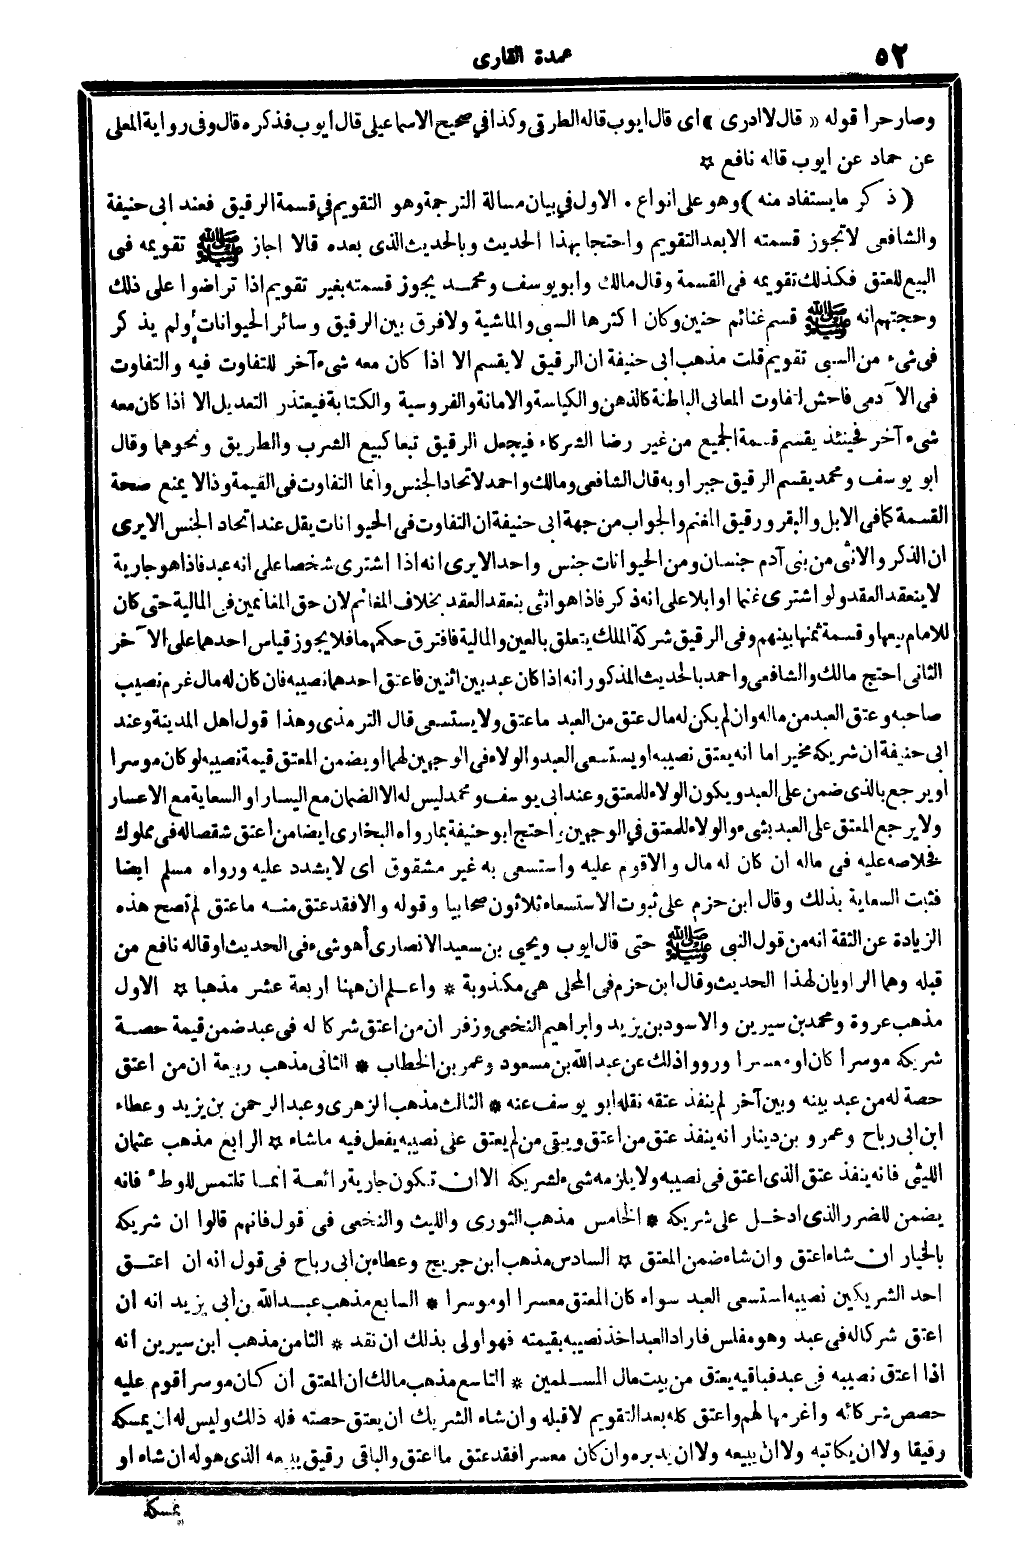 ٥٢
عمدة القارى
وصار حرا قوله « قال لا ادرى » اى قال ايوب قاله الطرقى وكذا في صحيح الاسماعيلى قال أيوب فذكره قال وفى رواية المعلى
عن حماد عن ايوب قاله نافع ✩
( ذكر ما يستفاد منه ) وهو على انواع . الاول في بيان مسالة الترجمة وهو التقويم في قسمة الرقيق فعند ابى حنيفة
والشافعى لا تجوز قسمته الا بعد التقويم واحتجا بهذا الحديث وبالحديث الذى بعده قالا اجاز ﷺ تقويمه فى
البيع للعتق فكذلك تقويمه فى القسمة وقال مالك وابو يوسف ومحمد يجوز قسمته بغير تقويم اذا تراضوا على ذلك
وحجتهم انه ﷺ قسم غنائم حنين وكان اكثرها السبى والماشية ولا فرق بين الرقيق وسائر الحيوانات ولم يذكر
فى شىء من السبى تقويم قلت مذهب ابى حنيفة ان الرقيق لا يقسم الا اذا كان معه شىء آخر للتفاوت فيه والتفاوت
فى الآدمى فاحش لتفاوت المعانى الباطنة كالذهن والكياسة والامانة والفروسية والكتابة فيعتذر التعديل الا اذا كان معه
شىء آخر فحينئذ يقسم قسمة الجميع من غير رضا الشركاء فيجعل الرقيق تبعا كبيع الشرب والطريق ونحوهما وقال
ابو يوسف ومحمد يقسم الرقيق جبرا وبه قال الشافعى ومالك واحمد لاتحاد الجنس وانما التفاوت فى القيمة وذا لا يمنع صحة
القسمة كما فى الابل والبقر ورقيق المغنم والجواب من جهة ابى حنيفة ان التفاوت فى الحيوانات يقل عند اتحاد الجنس الا يرى
ان الذكر والانثى من بنى آدم جنسان ومن الحيوانات جنس واحد الا يرى انه اذا اشترى شخصا على انه عبد فاذا هو جارية
لا ينعقد العقد ولو اشترى غنما او ابلا على انه ذكر فاذا هو انثى ينعقد العقد بخلاف المغانم لان حق الغانمين فى المالية حتى كان
للامام بيعها وقسمة ثمنها بينهم وفى الرقيق شركة الملك يتعلق بالعين والمالية فافترق حكمهما فلا يجوز قياس احدهما على الآخر
الثانى احتج مالك والشافعى واحمد بالحديث المذكور انه اذا كان عبد بين اثنين فاعتق احدهما نصيبه فان كان له مال غرم نصيب
صاحبه وعتق العبد من ماله وان لم يكن له مال عتق من العبد ما عتق ولا يستسعى قال الترمذى وهذا قول اهل المدينة وعند
ابى حنيفة ان شريكه مخير اما انه يعتق نصيبه او يستسعى العبد والولاء فى الوجهين لهما او يضمن المعتق قيمة نصيبه لو كان موسرا
او يرجع بالذى ضمن على العبد ويكون الولاء للمعتق وعند ابى يوسف ومحمد ليس له الا الضمان مع اليسار او السعاية مع الاعسار
ولا يرجع المعتق على العبد بشىء والولاء للمعتق في الوجهين واحتج ابو حنيفة بما رواه البخارى ايضا من أعتق شقصا له فى مملوك
فخلاصه عليه فى ماله ان كان له مال والا قوم عليه واستسعى به غير مشقوق اى لا يشدد عليه ورواه مسلم ايضا
فثبت السعاية بذلك وقال ابن حزم على ثبوت الاستسعاء ثلاثون صحابيا وقوله والا فقد عتق منه ما عتق لم تصح هذه
الزيادة عن الثقة انه من قول النبى ﷺ حتى قال ايوب ويحيى بن سعيد الانصارى أهو شىء فى الحديث او قاله نافع من
قبله وهما الراويان لهذا الحديث وقال ابن حزم فى المحلى هى مكذوبة * واعلم ان ههنا اربعة عشر مذهبا ✩ الاول
مذهب عروة ومحمد بن سيرين والاسود بن يزيد وابراهيم النخعى وزفر ان من اعتق شركا له فى عبد ضمن قيمة حصة
شريكه موسرا كان او معسرا ورووا ذلك عن عبد الله بن مسعود وعمر بن الخطاب * الثانى مذهب ربيعة ان من اعتق
حصة له من عبد بينه وبين آخر لم ينفذ عتقه نقله ابو يوسف عنه * الثالث مذهب الزهرى وعبد الرحمن بن يزيد وعطاء
ابن ابى رباح وعمرو بن دينار انه ينفذ عتق من اعتق ويبقى من لم يعتق على نصيبه يفعل فيه ما شاء ✩ الرابع مذهب عثمان
الليثى فانه ينفذ عتق الذى اعتق فى نصيبه ولا يلزمه شىء لشريكه الا ان تكون جارية رائعة انما تلتمس للوطء فانه
يضمن للضرر الذى ادخل على شريكه * الخامس مذهب الثورى والليث والنخعى فى قول فانهم قالوا ان شريكه
بالخيار ان شاء اعتق وان شاء ضمن المعتق ✩ السادس مذهب ابن جريج وعطاء بن ابى رباح فى قول انه ان اعتق
احد الشريكين نصيبه استسعى العبد سواء كان المعتق معسرا او موسرا * السابع مذهب عبد الله بن أبى يزيد انه ان
اعتق شركا له فى عبد وهو مفلس فاراد العبد اخذ نصيبه بقيمته فهو اولى بذلك ان نقد * الثامن مذهب ابن سيرين أنه
اذا اعتق نصيبه فى عبد فباقيه يعتق من بيت مال المسلمين * التاسع مذهب مالك ان المعتق أن كان موسرا قوم عليه
حصص شركائه واغرمها لهم واعتق كله بعد التقويم لا قبله وان شاء الشريك ان يعتق حصته فله ذلك وليس له ان يمسكه
رقيقا ولا ان يكاتبه ولا ان يبيعه ولا ان يدبره وان كان معسرا فقد عتق ما اعتق والباقى رقيق يبيعه الذى هو له ان شاء او
يمسكه